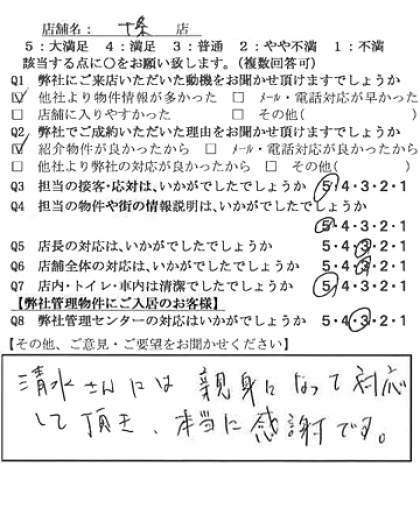 店舗名： 十条 店
5：大満足 4：満足 3：普通 2：やや不満 1：不満
該当する点に○をお願い致します。（複数回答可）
Q1 弊社にご来店いただいた動機をお聞かせ頂けますでしょうか
☑ 他社より物件情報が多かった □ メール・電話対応が早かった
□ 店舗に入りやすかった □ その他( )
Q2 弊社でご成約いただいた理由をお聞かせ頂けますでしょうか
☑ 紹介物件が良かったから □ メール・電話対応が良かったから
□ 他社より弊社の対応が良かったから □ その他( )
Q3 担当の接客・応対は、いかがでしたでしょうか 5・4・3・2・1
Q4 担当の物件や街の情報説明は、いかがでしたでしょうか
5・4・3・2・1
Q5 店長の対応は、いかがでしたでしょうか 5・4・3・2・1
Q6 店舗全体の対応は、いかがでしたでしょうか 5・4・3・2・1
Q7 店内・トイレ・車内は清潔でしたでしょうか 5・4・3・2・1
【弊社管理物件にご入居のお客様】
Q8 弊社管理センターの対応はいかがでしょうか 5・4・3・2・1
【その他、ご意見・ご要望をお聞かせください】
清水さんには 親身になって対応
して頂き、本当に感謝です。